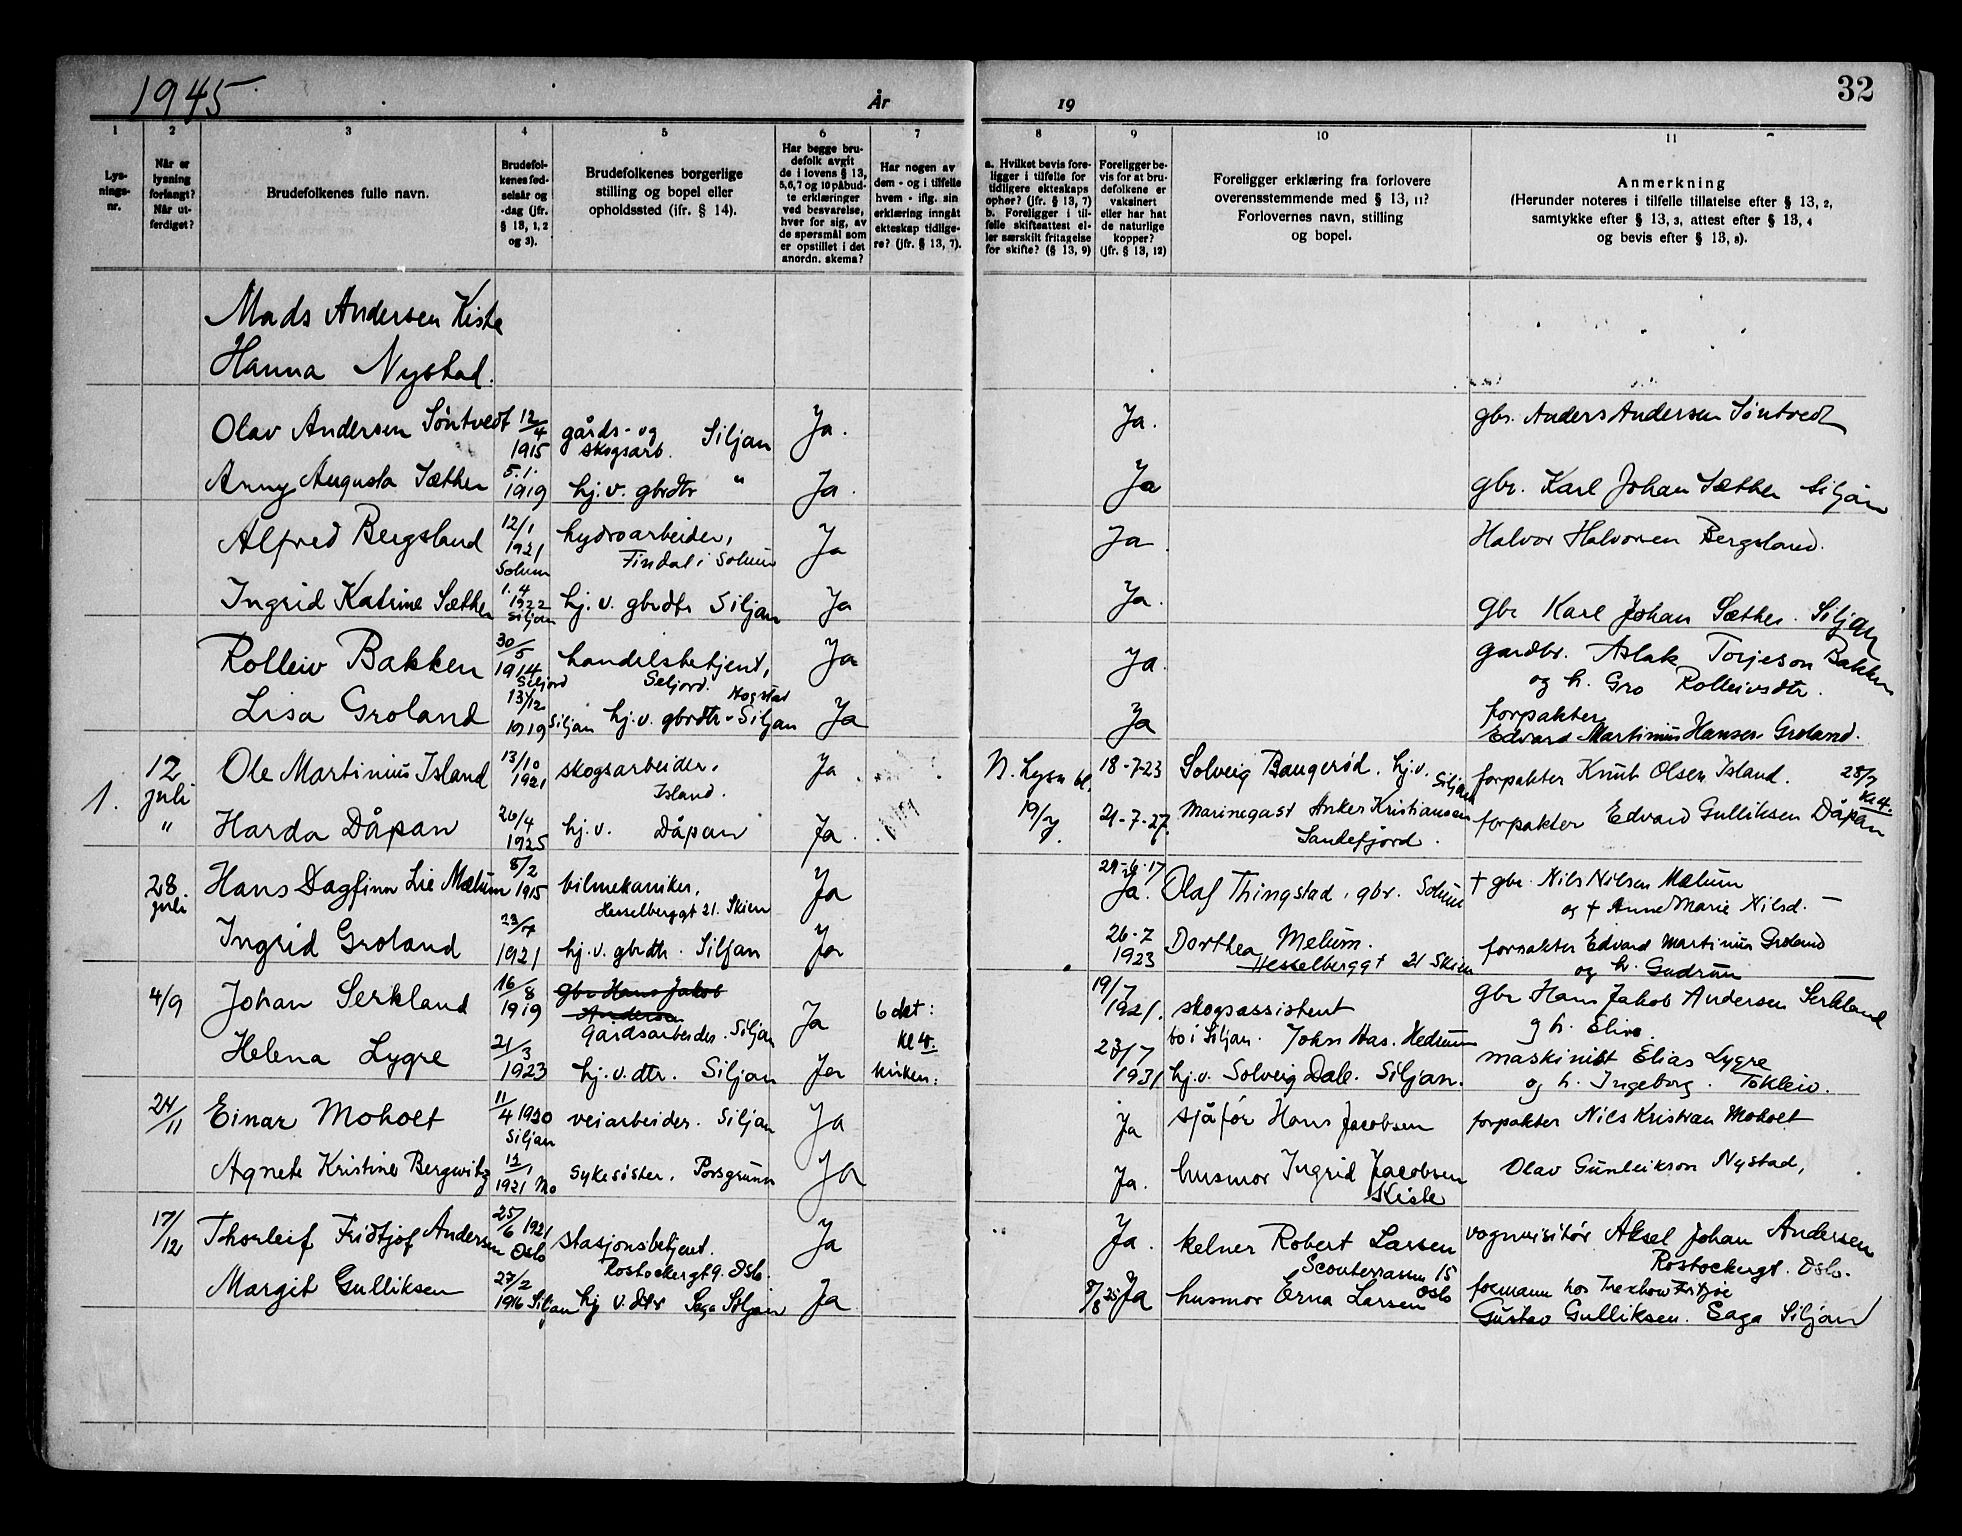 1945
År
19
32
1
2
3
4
5
6
7
8
9
10
11
Lys-
nings-
nr.
Når er
lysning
forlangt?
Når ut-
ferdiget?
Brudefolkenes fulle navn.
Brudefol-
kenes fød-
selsår og
-dag (jfr.
§ 13, 1, 2
og 3).
Brudefolkenes borgerlige
stilling og bopel eller
opholdssted (ifr. § 14).
Har begge bru-
defolk avgit
de i lovens § 13,
5,6,7 og 10 påbud-
te erklæringer
ved besvarelse,
hver for sig, av
de spørsmål som
er opstillet i det
anordn. skema?
Har nogen av
dem - og i tilfelle
hvem - iflg. sin
erklæring inngåt
ekteskap tidlige-
re? (jfr. § 13, 7).
a. Hvilket bevis fore-
ligger i tilfelle for
tidligere ekteskaps
ophør? (jfr. § 13, 7)
b. Foreligger i til-
felle skifteattest el-
ler særskilt fritagelse
for skifte? (§ 13, 9)
Foreligger be-
vis for at bru-
defolkene er
vaksinert
eller har hat
de naturlige
kopper?
(jfr. § 13, 12)
Foreligger erklæring fra forlovere
overensstemmende med § 13, 11?
Forlovernes navn, stilling
og bopel.
Anmerkning
(Herunder noteres i tilfelle tillatelse efter § 13, 2,
samtykke efter § 13, 3, attest efter § 13, 4
og bevis efter § 13, 8).
Mads Andersen Kiste
Hanna Nystad.
Olav Andersen Søntvedt 12/4 1915 gårds- og skogsarb. Siljan Ja. Ja. gbr. Anders Andersen Søntvedt
Anny Augusta Sæther 5.1. 1919 hj.v. gbrdtr " Ja. Ja gbr. Karl Johan Sæther Siljan
Alfred Bergsland 12/1 1921 Solum hydroarbeider, Findal i Solum Ja Ja. Halvor Halvorsen Bergsland.
Ingrid Katrine Sæther 1.4 1922 Siljan hj.v. gbrdtr Siljan Ja Ja. gbr Karl Johan Sæther. Siljan
Rolleiv Bakken 30/5 1914 Seljord handelsbetjent, Seljord. Ja Ja. gardbr. Aslak Torjeson Bakken
og h. Gro Rolleivsdtr.
Lisa Groland 13/12 1919 Siljan hj.v. gbrdtr - Siljan Ja Ja forpakter
Edvard Martinius Hansen Groland.
1. 12 juli Ole Martinius Island 13/10 1921 skogsarbeider, Island. Ja. N. lysn bl. 18-7-23 Solveig Baugerød. hj.v. Siljan forpakter Knut Olsen Island. 28/7 Kl 4.
" Harda Dåpan 26/4 1925 hj.v. Dåpan Ja. 19/7. 21-7-27. Marinegast Anker Kristiansen Sandefjord. forpakter Edvard Gulliksen Dåpan
28 juli Hans Dagfinn Lie Mælum 8/2 1915 bilmekaniker, Hesselberggt 21. Skien Ja 29-6-17 Ja. Olaf Thingstad, gbr. Solum † gbr. Nils Nilsen Mælum
og † Anne Marie Nilsd. —
Ingrid Groland 23/4 1921 hj.v. gbrdtr. Siljan Ja 26-7 1923 Dorthea Melum. Hesselberggt 21 Skien forpakter Edvard Martinius Groland
og h. Gudrun
4/9 Johan Serkland 16/8 1919 gbr Hans Jakob Andersen Gårdsarbeider. Siljan Ja 6 okt: kl 4. 19/7 1921. skogsassistent
bo i Siljan. John Has. Hedrum gbr Hans Jakob Andersen Serkland
og h. Elise.
Helena Lygre 21/3 1923 hj.v. dtr. Siljan Ja kirken: 23/7 1931 hj.v. Solveig Dale. Siljan. maskinist Elias Lygre
og h. Ingeborg. Tokleiv.
24/11 Einar Moholt 11/4 1920 Siljan veiarbeider. Siljan Ja Ja sjåfør Hans Jacobsen forpakter Nils Kristian Moholt
Agnete Kristine Bergwitz 12/1 1921 Mo sykesøster. Porsgrunn Ja Ja. husmor Ingrid Jacobsen Kiste Olav Gunleikson Nystad,
17/12 Thorleif Fridtjof Andersen 25/6 1921 Oslo stasjonsbetjent. Rostockergt 9. Oslo. Ja Ja. kelner Robert Larsen
Scouterrassen 15 Oslo vognvisitør Aksel Johan Andersen
Rostockergt. Oslo.
Margit Gulliksen 27/2 1916 Siljan hj v. dtr Saga Siljan Ja 8/8 25 Ja husmor Erna Larsen formann hos Treschow Fritzøe
Gustav Gulliksen. Saga Siljan